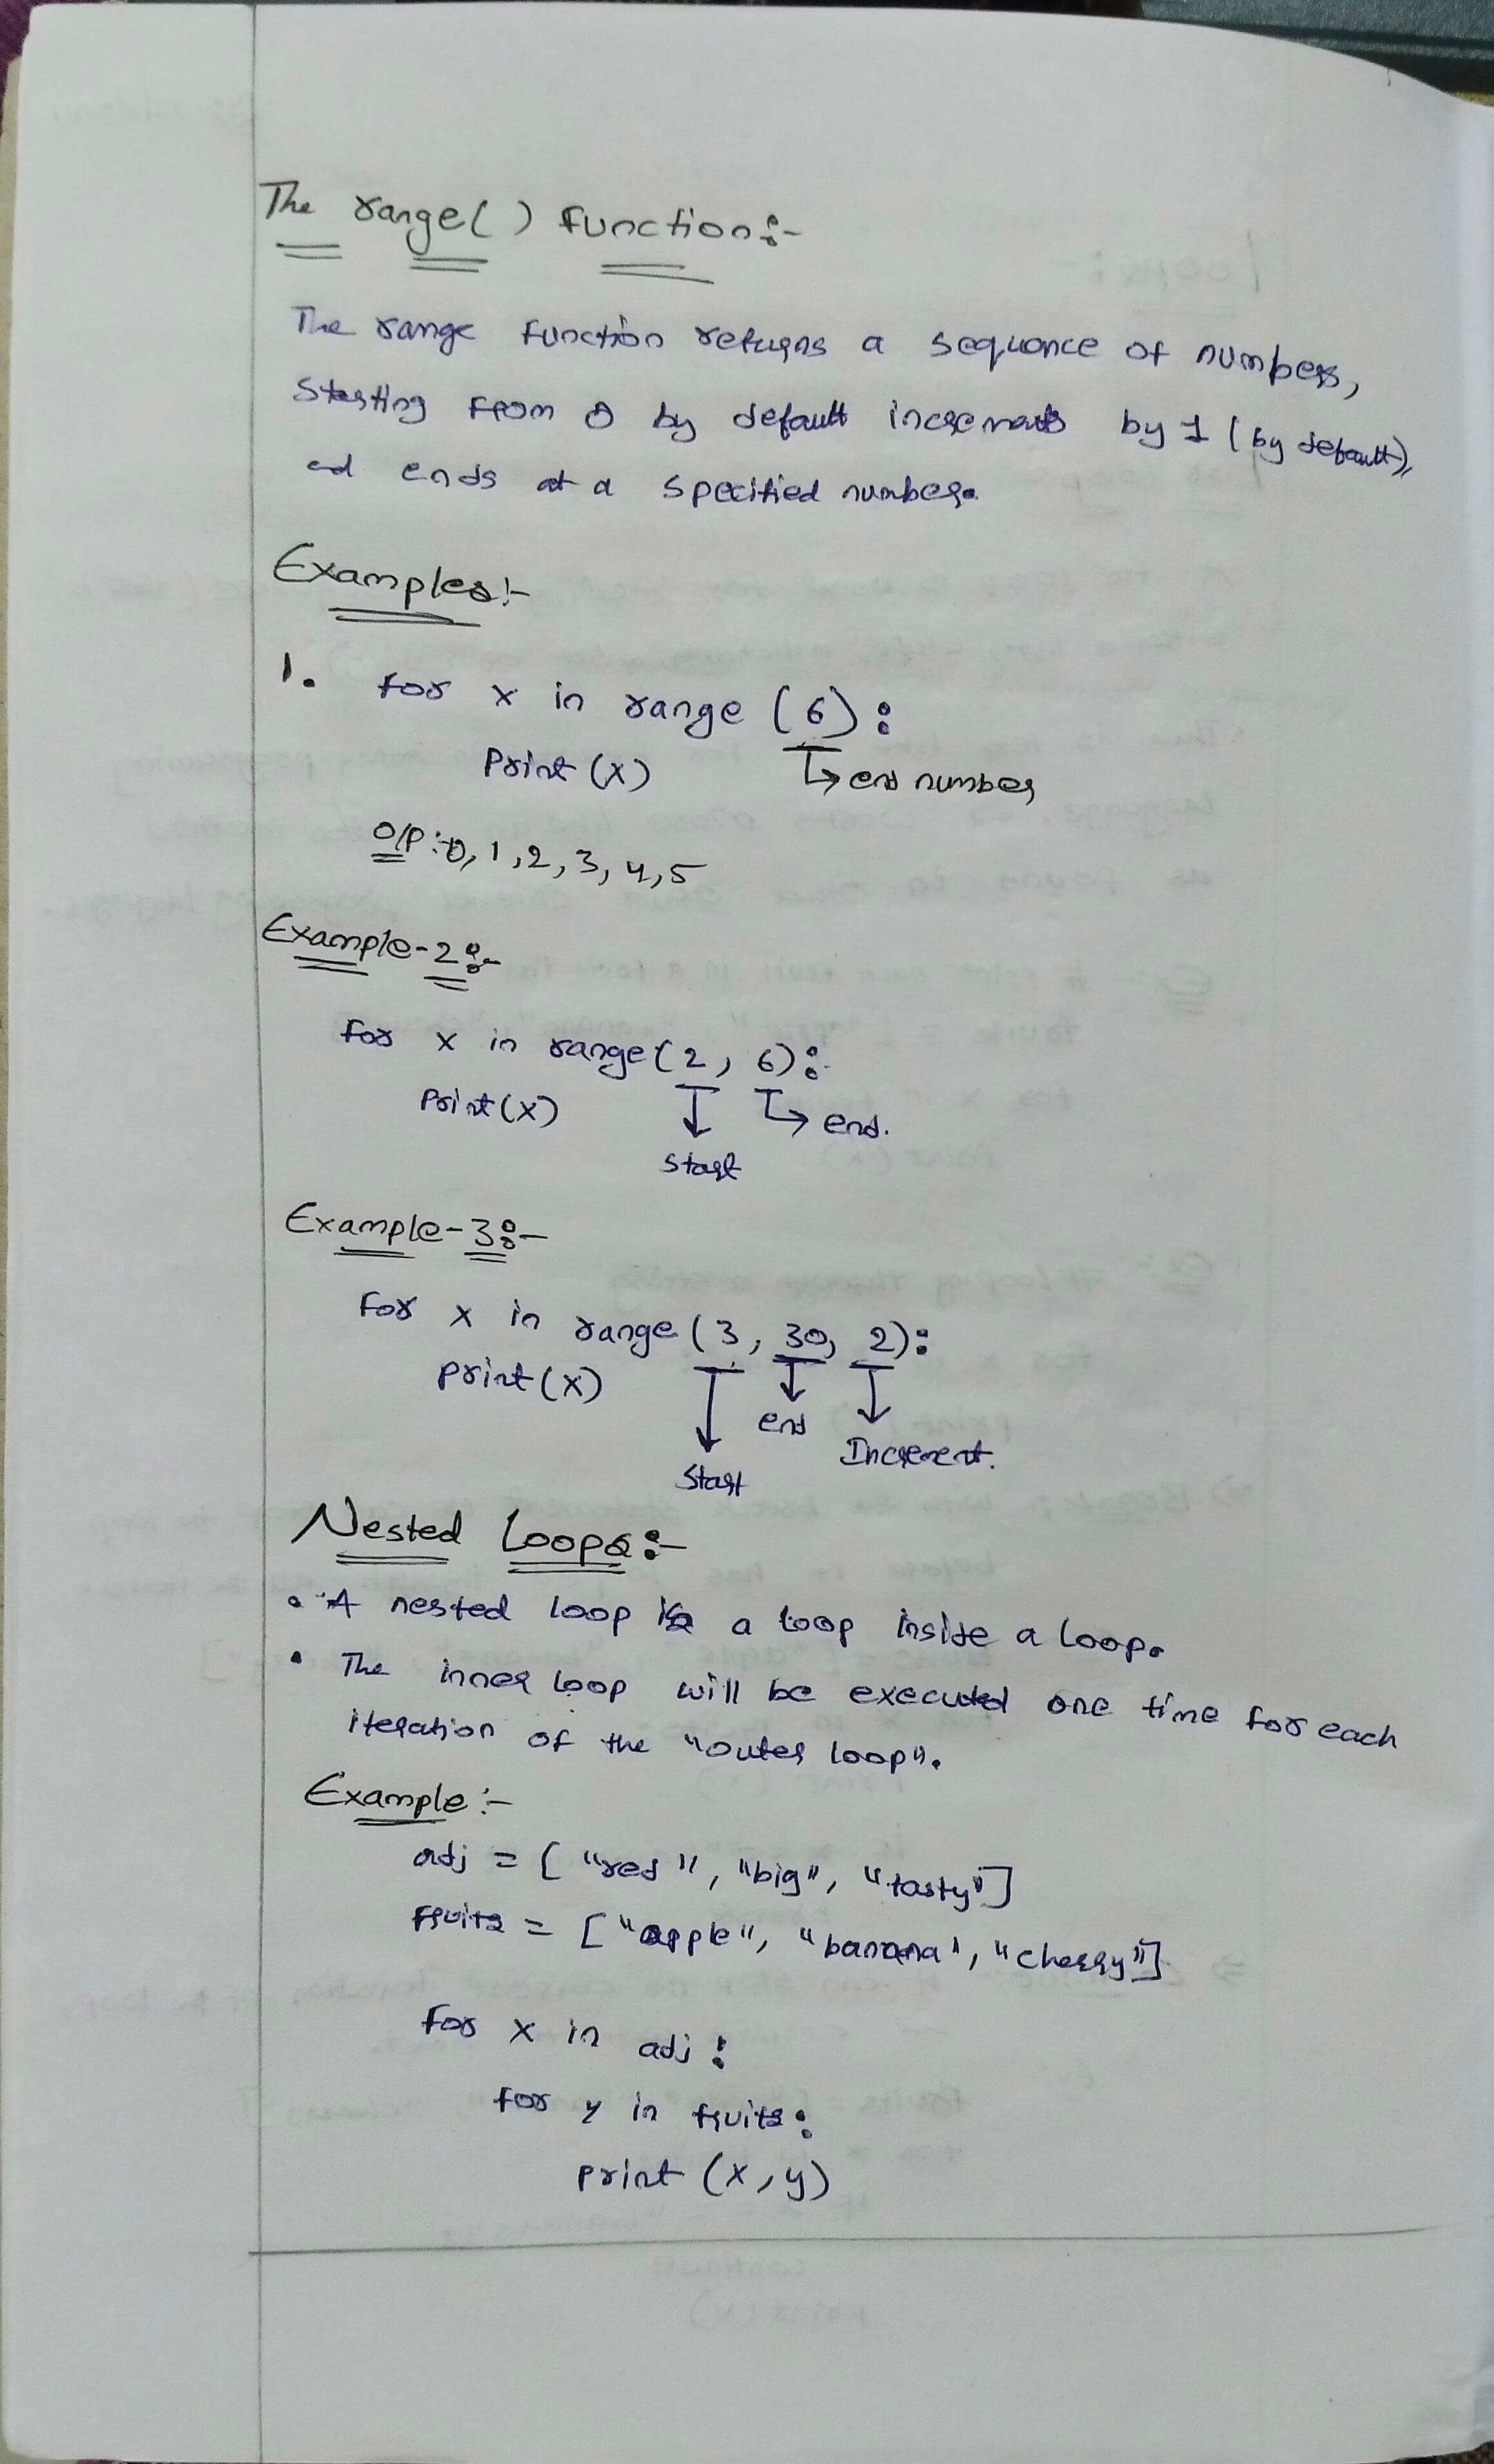 The range() function:-
The range function returns a sequence of numbers,
starting from 0 by default increments by 1 (by default),
ad ends at a specified number.
Examples:-
1. for x in range (6):
print (x) → end number
o/p:- 0, 1, 2, 3, 4, 5
Example-2:-
for x in range(2, 6):
print(x) → end.
start
Example-3:-
for x in range (3, 30, 2):
print(x)
end
Increment.
start
Nested Loops:-
• A nested loop is a loop inside a loop.
• The inner loop will be executed one time for each
iteration of the "outer loop".
Example:-
adj = ["red", "big", "tasty"]
fruits = ["apple", "banana', "cherry"]
for x in adj:
for y in fruits:
print (x, y)